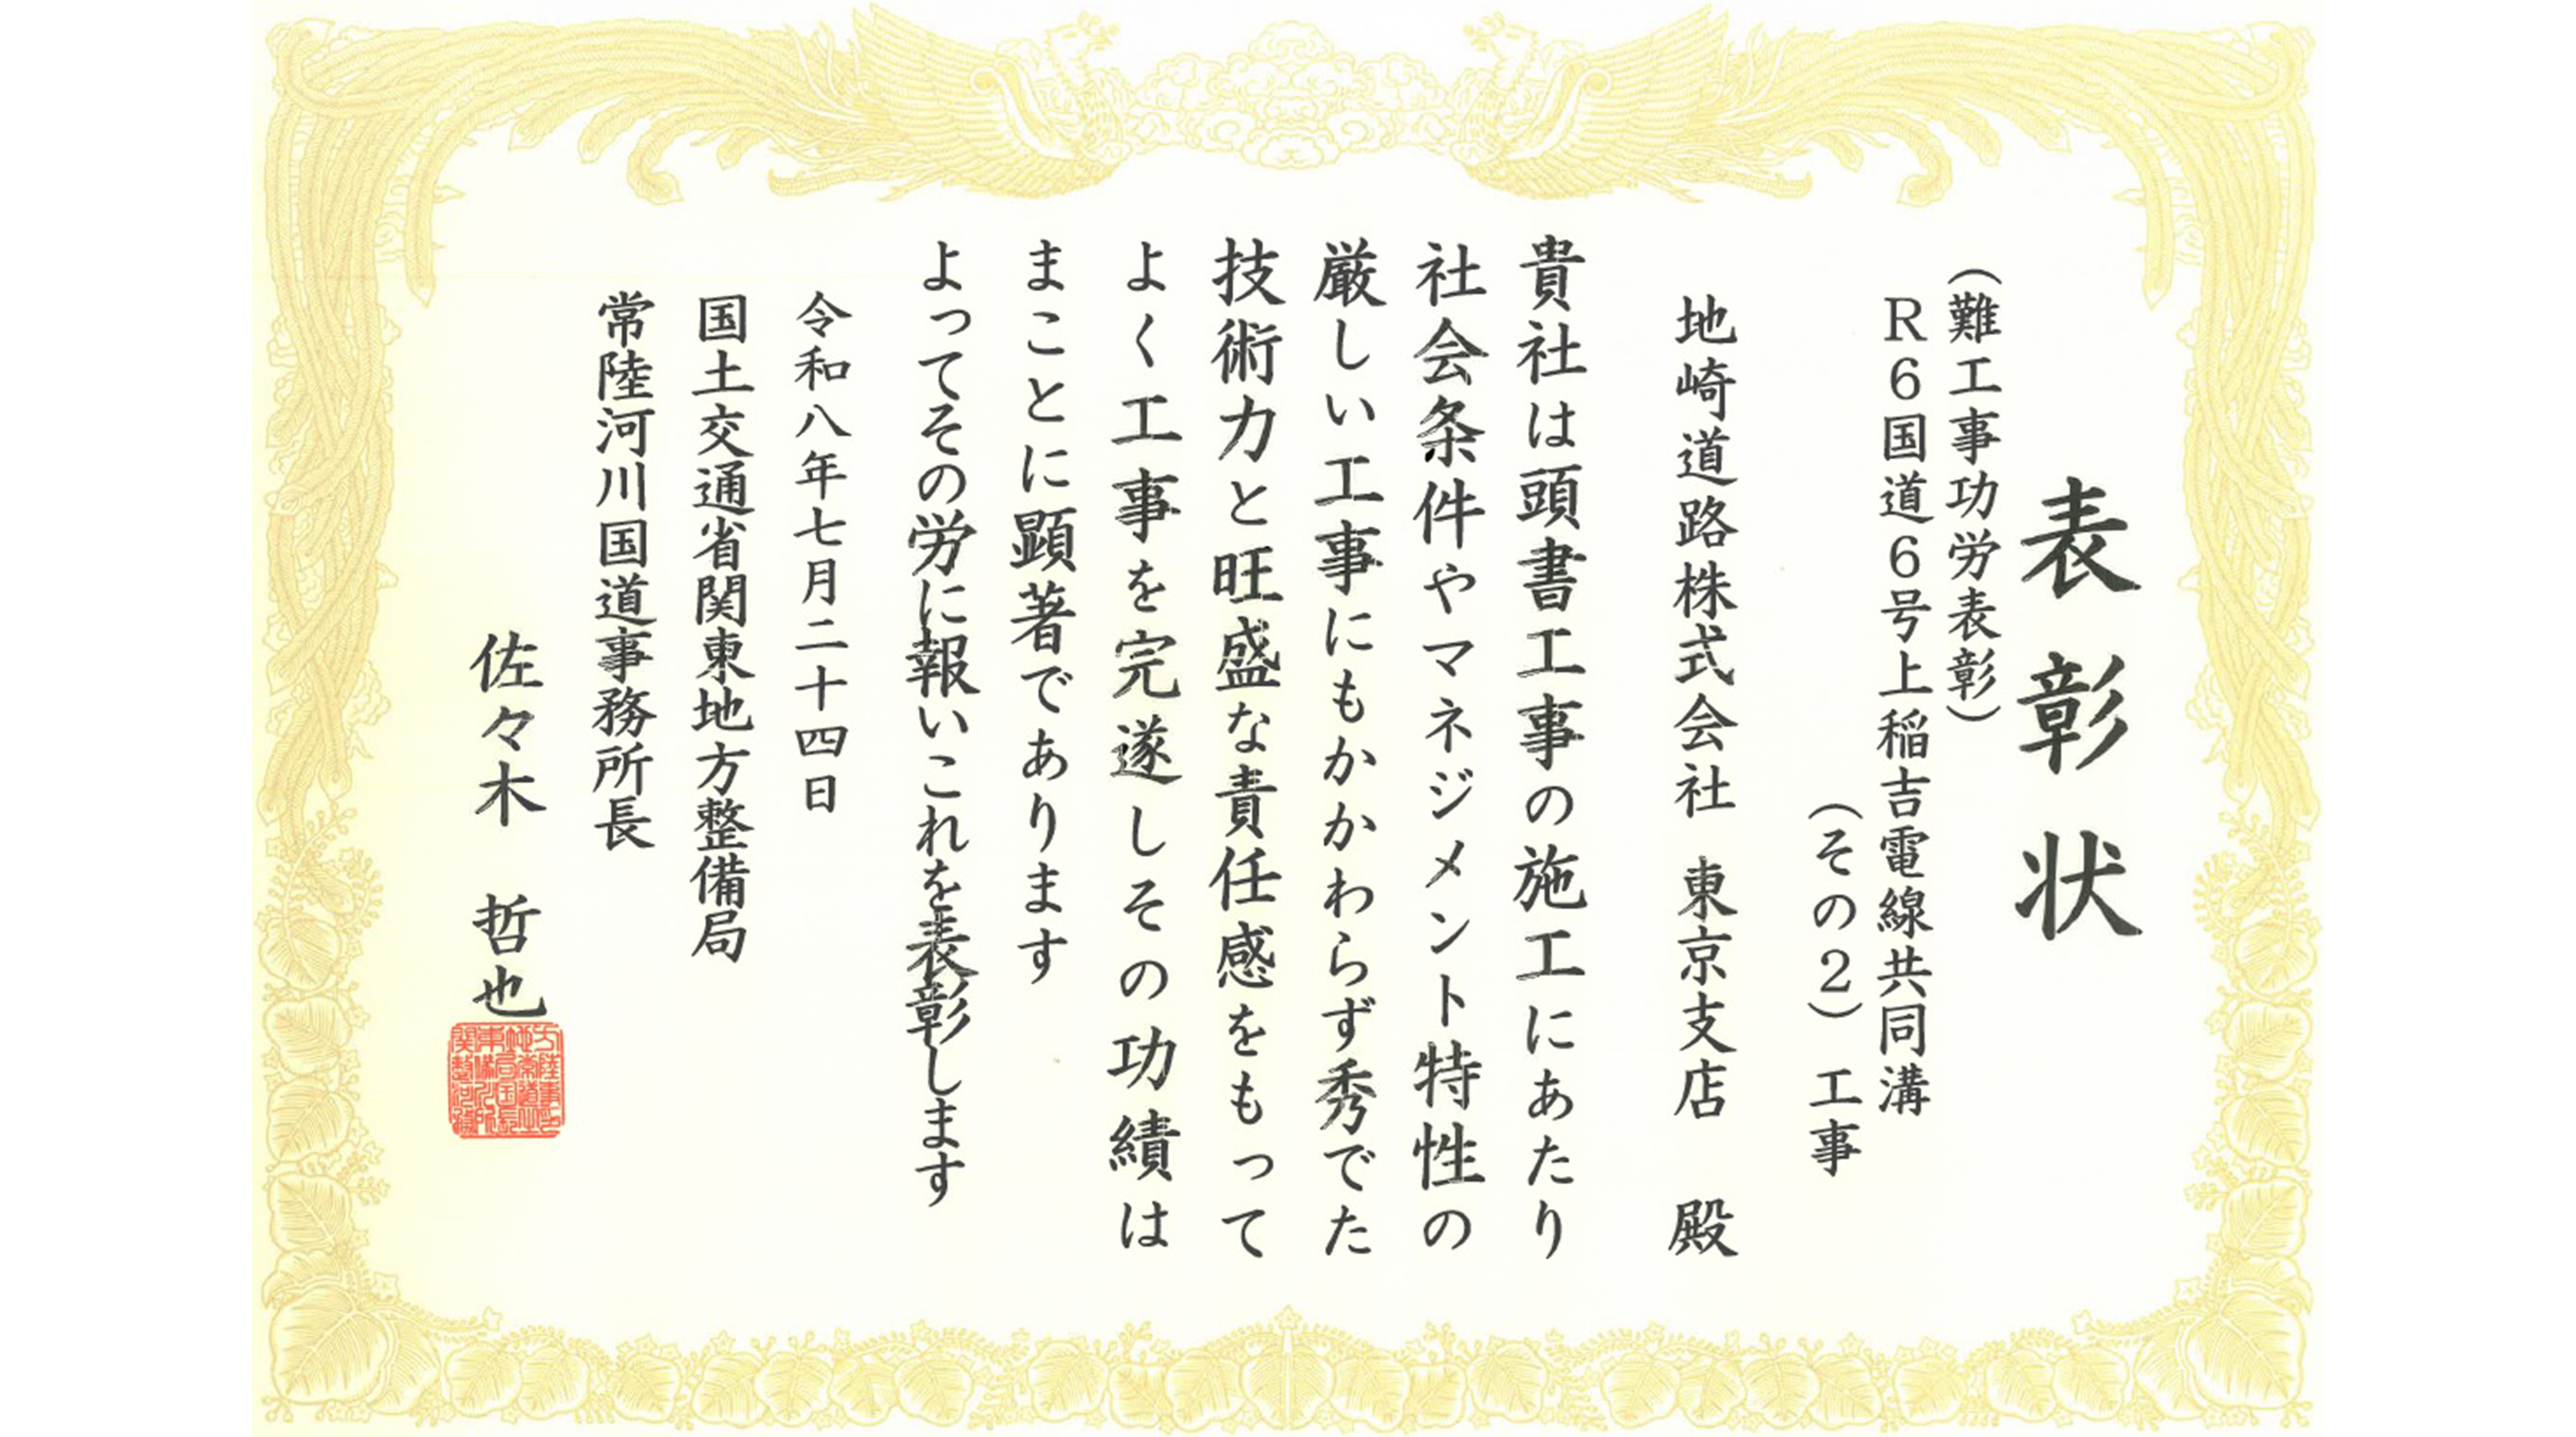 表彰状
（難工事功労表彰）
R6国道6号上稲吉電線共同溝
（その2）工事
地崎道路株式会社 東京支店 殿
貴社は頭書工事の施工にあたり
社会条件やマネジメント特性の
厳しい工事にもかかわらず秀でた
技術力と旺盛な責任感をもって
よく工事を完遂しその功績は
まことに顕著であります
よってその労に報いこれを表彰します
令和八年七月二十四日
国土交通省関東地方整備局
常陸河川国道事務所長
佐々木 哲也